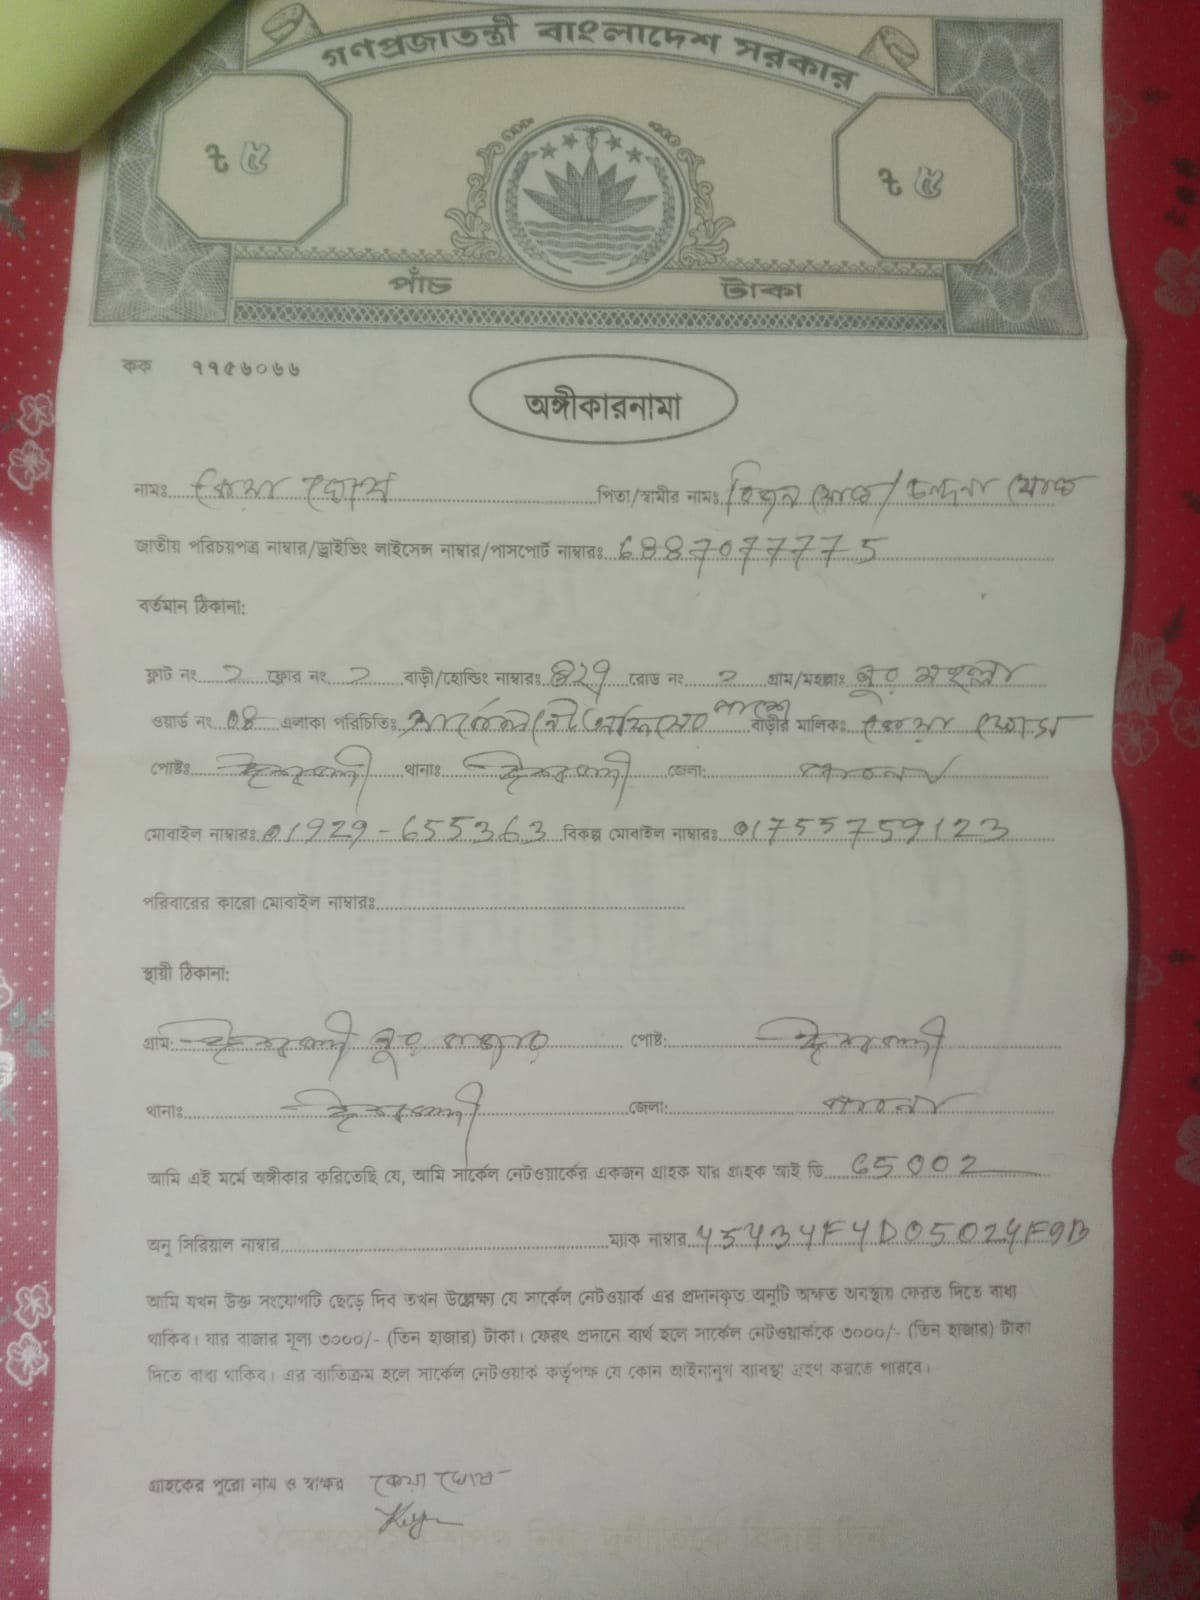 গণপ্রজাতন্ত্রী বাংলাদেশ সরকার
৳ ৫ ৳ ৫
পাঁচ টাকা
কক ৭৭৫৬০৬৬
অঙ্গীকারনামা
নামঃ কেয়া ঘোষ পিতা/স্বামীর নামঃ ঘোষ/ চন্দনা ঘোষ
জাতীয় পরিচয়পত্র নাম্বার/ড্রাইভিং লাইসেন্স নাম্বার/পাসপোর্ট নাম্বারঃ 6887077775
বর্তমান ঠিকানা:
ফ্লাট নং ২ ফ্লোর নং ২ বাড়ী/হোল্ডিং নাম্বারঃ রোড নং ২ গ্রাম/মহল্লাঃ নুর মহল্লা
ওয়ার্ড নং 08 এলাকা পরিচিতিঃ সার্কেল নেট অফিসের পাশে বাড়ীর মালিকঃ কেয়া ঘোষ
পোষ্টঃ ঈশ্বরদী থানাঃ ঈশ্বরদী জেলা: পাবনা
মোবাইল নাম্বারঃ 01929-655363 বিকল্প মোবাইল নাম্বারঃ 01755759123
পরিবারের কারো মোবাইল নাম্বারঃ
স্থায়ী ঠিকানা:
গ্রাম: ঈশ্বরদী নুর মহল্লা পোষ্ট: ঈশ্বরদী
থানাঃ ঈশ্বরদী জেলা: পাবনা
আমি এই মর্মে অঙ্গীকার করিতেছি যে, আমি সার্কেল নেটওয়ার্কের একজন গ্রাহক যার গ্রাহক আই ডি 65002
অনু সিরিয়াল নাম্বার ম্যাক নাম্বার 45434F4D05024F9B
আমি যখন উক্ত সংযোগটি ছেড়ে দিব তখন উল্লেক্ষ্য যে সার্কেল নেটওয়ার্ক এর প্রদানকৃত অনুটি অক্ষত অবস্থায় ফেরত দিতে বাধ্য
থাকিব। যার বাজার মূল্য ৩০০০/- (তিন হাজার) টাকা। ফেরৎ প্রদানে ব্যর্থ হলে সার্কেল নেটওয়ার্ককে ৩০০০/- (তিন হাজার) টাকা
দিতে বাধ্য থাকিব। এর ব্যতিক্রম হলে সার্কেল নেটওয়ার্ক কর্তৃপক্ষ যে কোন আইনানুগ ব্যাবস্থা গ্রহণ করতে পারবে।
গ্রাহকের পুরো নাম ও স্বাক্ষর কেয়া ঘোষ
Keya